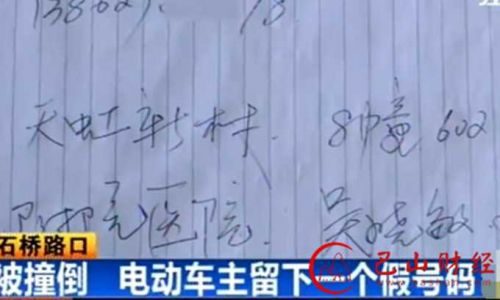 天虹新村 8幢 602
医院 吴晓敏
石桥路口
被撞倒 电动车主留下一个假号码
巴山财经